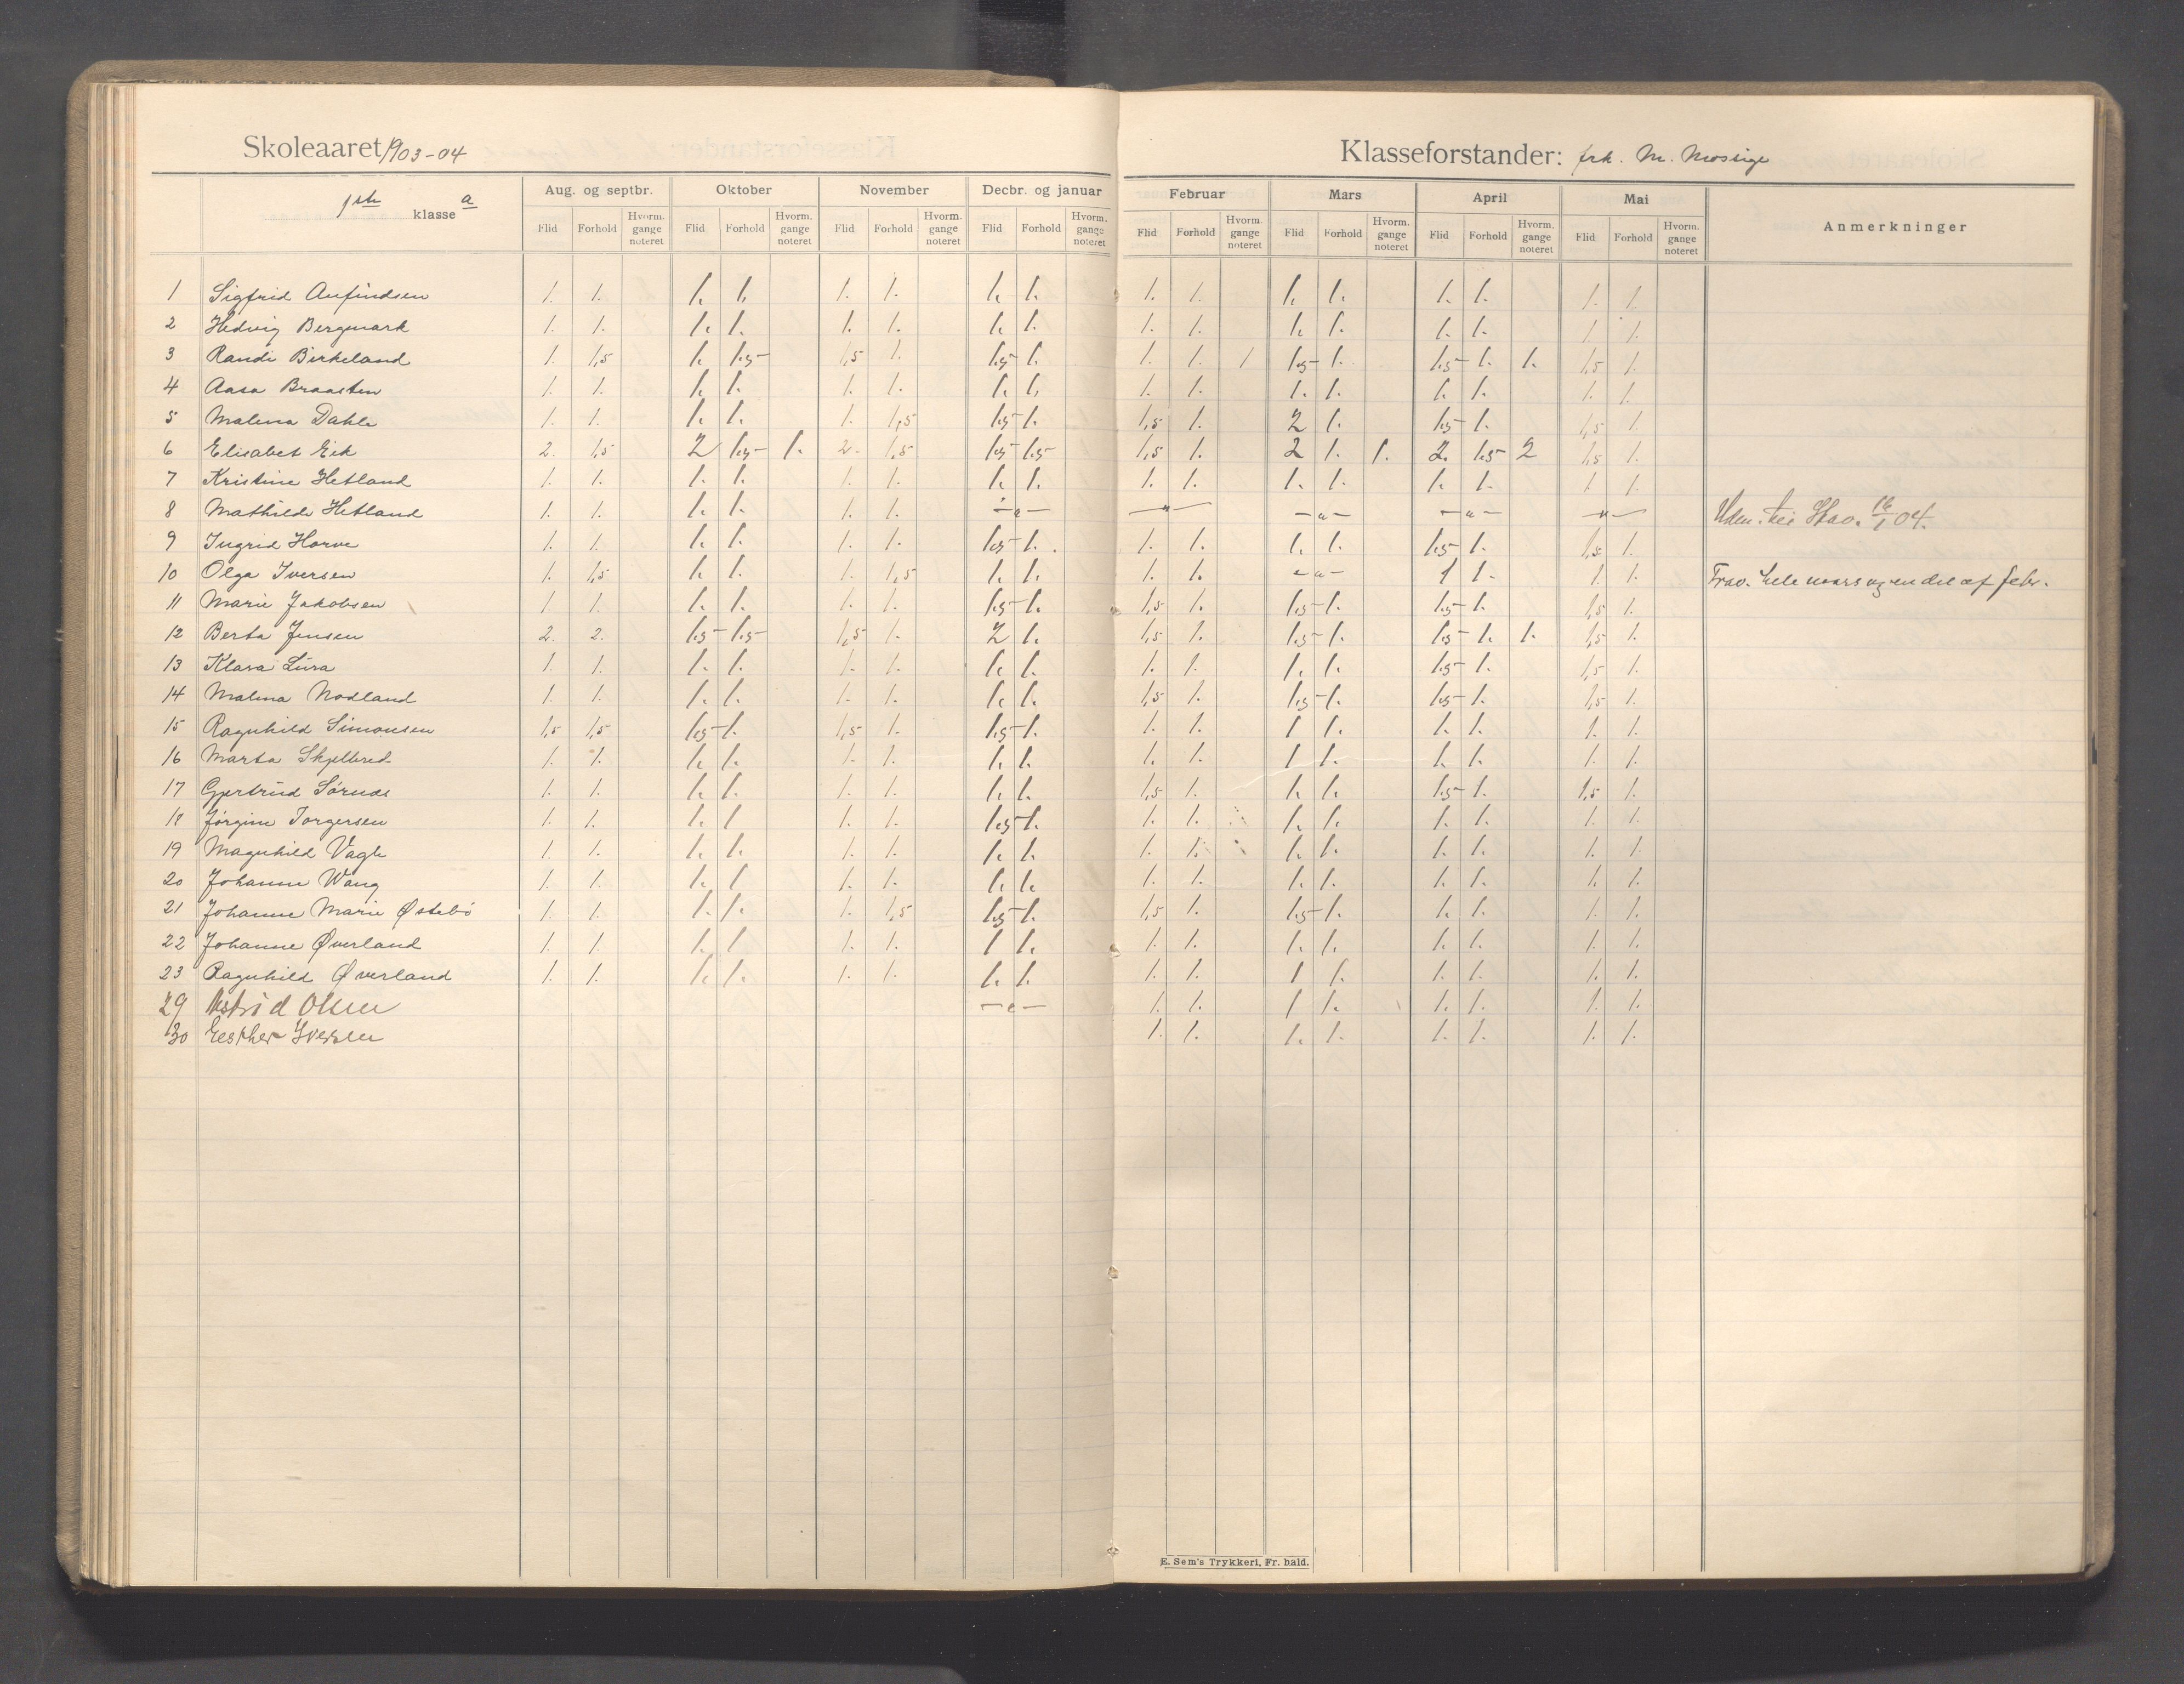 Skoleaaret 1903-04
Klasseforstander: frk. M. Mossige
1ste klasse a
Aug. og septbr. Oktober November Decbr. og januar Februar Mars April Mai
Flid Forhold Hvorm. gange noteret Flid Forhold Hvorm. gange noteret Flid Forhold Hvorm. gange noteret Flid Forhold Hvorm. gange noteret Flid Forhold Hvorm. gange noteret Flid Forhold Hvorm. gange noteret Flid Forhold Hvorm. gange noteret Flid Forhold Hvorm. gange noteret Anmerkninger
1 Sigfrid Anfindsen 1. 1. 1. 1. 1. 1. 1. 1. 1. 1. 1. 1. 1. 1. 1. 1.
2 Hedvig Bergmark 1. 1. 1. 1. 1. 1. 1. 1. 1. 1. 1. 1. 1. 1. 1. 1.
3 Randi Birkeland 1. 1,5 1. 1.5 1,5 1. 1.5 1. 1. 1. 1 1.5 1. 1.5 1. 1. 1,5 1.
4 Aasa Braasten 1. 1. 1. 1. 1. 1. 1. 1. 1. 1. 1. 1. 1. 1. 1. 1.
5 Malena Dahle 1. 1. 1. 1. 1. 1,5 1.5 1. 1,5 1. 2 1. 1.5 1. 1,5 1.
6 Elisabet Eik 2. 1,5 2 1.5 1. 2. 1,5 1.5 1.5 1,5 1. 2 1. 1. 2. 1.5 2 1,5 1.
7 Kristine Hetland 1. 1. 1. 1. 1. 1. 1. 1. 1. 1. 1. 1. 1. 1. 1. 1.
8 Mathilde Hetland 1. 1. 1. 1. 1. 1. —„— —„— —„— —„— —„— Stav. 16/1 04.
9 Ingrid Horve 1. 1. 1. 1. 1. 1. 1.5 1. 1. 1. 1. 1. 1.5 1. 1,5 1.
10 Olga Iversen 1. 1,5 1. 1. 1. 1,5 1. 1. 1. 1. —„— 1 1. 1. 1. Frav. hele mars og en del af febr.
11 Marie Jakobsen 1. 1. 1. 1. 1. 1. 1.5 1. 1,5 1. 1.5 1. 1.5 1. 1,5 1.
12 Berta Jensen 2. 2. 1.5 1.5 1,5 1. 2 1. 1,5 1. 1.5 1. 1.5 1. 1. 1,5 1.
13 Klara Lura 1. 1. 1. 1. 1. 1. 1. 1. 1. 1. 1. 1. 1.5 1. 1,5 1.
14 Malena Nodland 1. 1. 1. 1. 1. 1. 1. 1. 1,5 1. 1.5 1. 1.5 1. 1,5 1.
15 Ragnhild Simonsen 1,5 1,5 1.5 1. 1,5 1. 1.5 1. 1. 1. 1 1. 1. 1. 1. 1.
16 Marta Skjelbred 1. 1. 1. 1. 1. 1. 1. 1. 1. 1. 1 1. 1. 1. 1. 1.
17 Gjertrud Sørnas 1. 1. 1. 1. 1. 1. 1. 1. 1,5 1. 1. 1. 1.5 1. 1,5 1.
18 Jørgine Torgersen 1. 1. 1. 1 1. 1. 1.5 1. 1. 1. 1. 1. 1. 1. 1. 1.
19 Magnhild Vagle 1. 1. 1. 1. 1. 1. 1. 1. 1. 1. 1. 1. 1. 1. 1. 1.
20 Johanne Wang 1. 1. 1. 1 1. 1. 1. 1. 1. 1. 1. 1. 1. 1. 1. 1.
21 Johanne Marie Østebø 1. 1. 1. 1. 1. 1,5 1.5 1. 1,5 1. 1.5 1. 1. 1. 1. 1.
22 Johanne Øverland 1. 1. 1. 1 1. 1. 1 1. 1. 1. 1. 1. 1. 1. 1. 1.
23 Ragnhild Øverland 1. 1. 1. 1. 1. 1. 1. 1. 1. 1. 1 1. 1. 1. 1. 1.
29 Astrid Olsen —„— 1. 1. 1 1. 1. 1. 1. 1.
30 Esther Iversen 1. 1. 1. 1. 1. 1. 1. 1.
E. Sem's Trykkeri, Fr. hald.